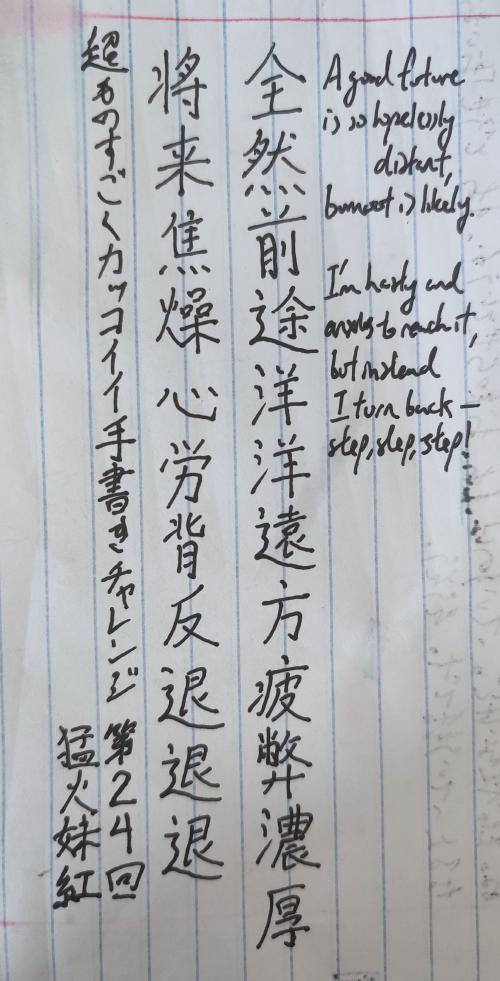 全然前途洋洋遠方疲弊濃厚
将来焦燥心労背反退退退
超ものすごくカッコイイ手書きチャレンジ 第24回
猛火妹紅
A good future
is so hopelessly
distant,
burnout is likely.
I'm hasty and
anxious to reach it,
but instead
I turn back —
step, step, step!